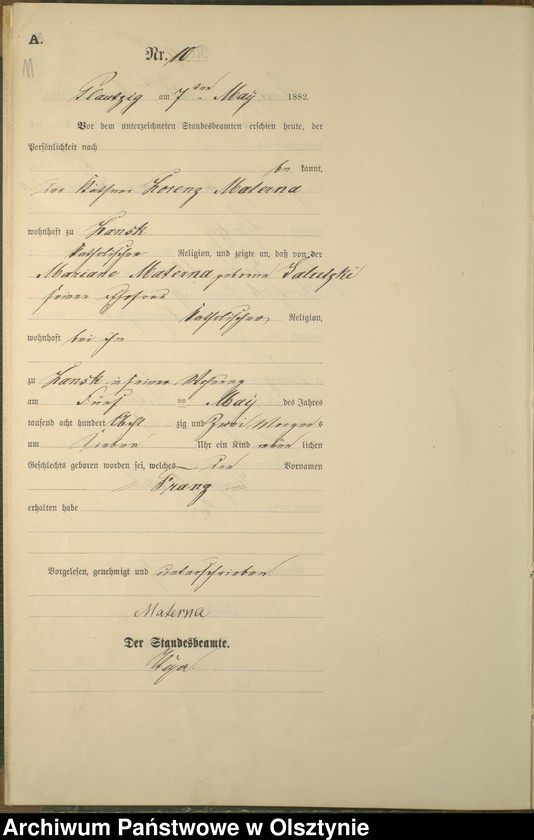 A.
11
Nr. 10.
Plautzig am 7ten May 1882.
Vor dem unterzeichneten Standesbeamten erschien heute, der
Persönlichkeit nach
be kannt,
der Käthner Lorenz Materna
wohnhaft zu Lansk
katholischer Religion, und zeigte an, daß von der
Mariane Materna geborene
seiner Ehefrau
katholischer, Religion,
wohnhaft bei ihm
zu Lansk in seiner Wohnung
am Fünf ten May des Jahres
tausend acht hundert Acht zig und Zwei Morgens
um Sieben Uhr ein Kind männ lichen
Geschlechts geboren worden sei, welches den Vornamen
Franz
erhalten habe
Vorgelesen, genehmigt und unterschrieben
Materna
Der Standesbeamte.
Archiwum Państwowe w Olsztynie